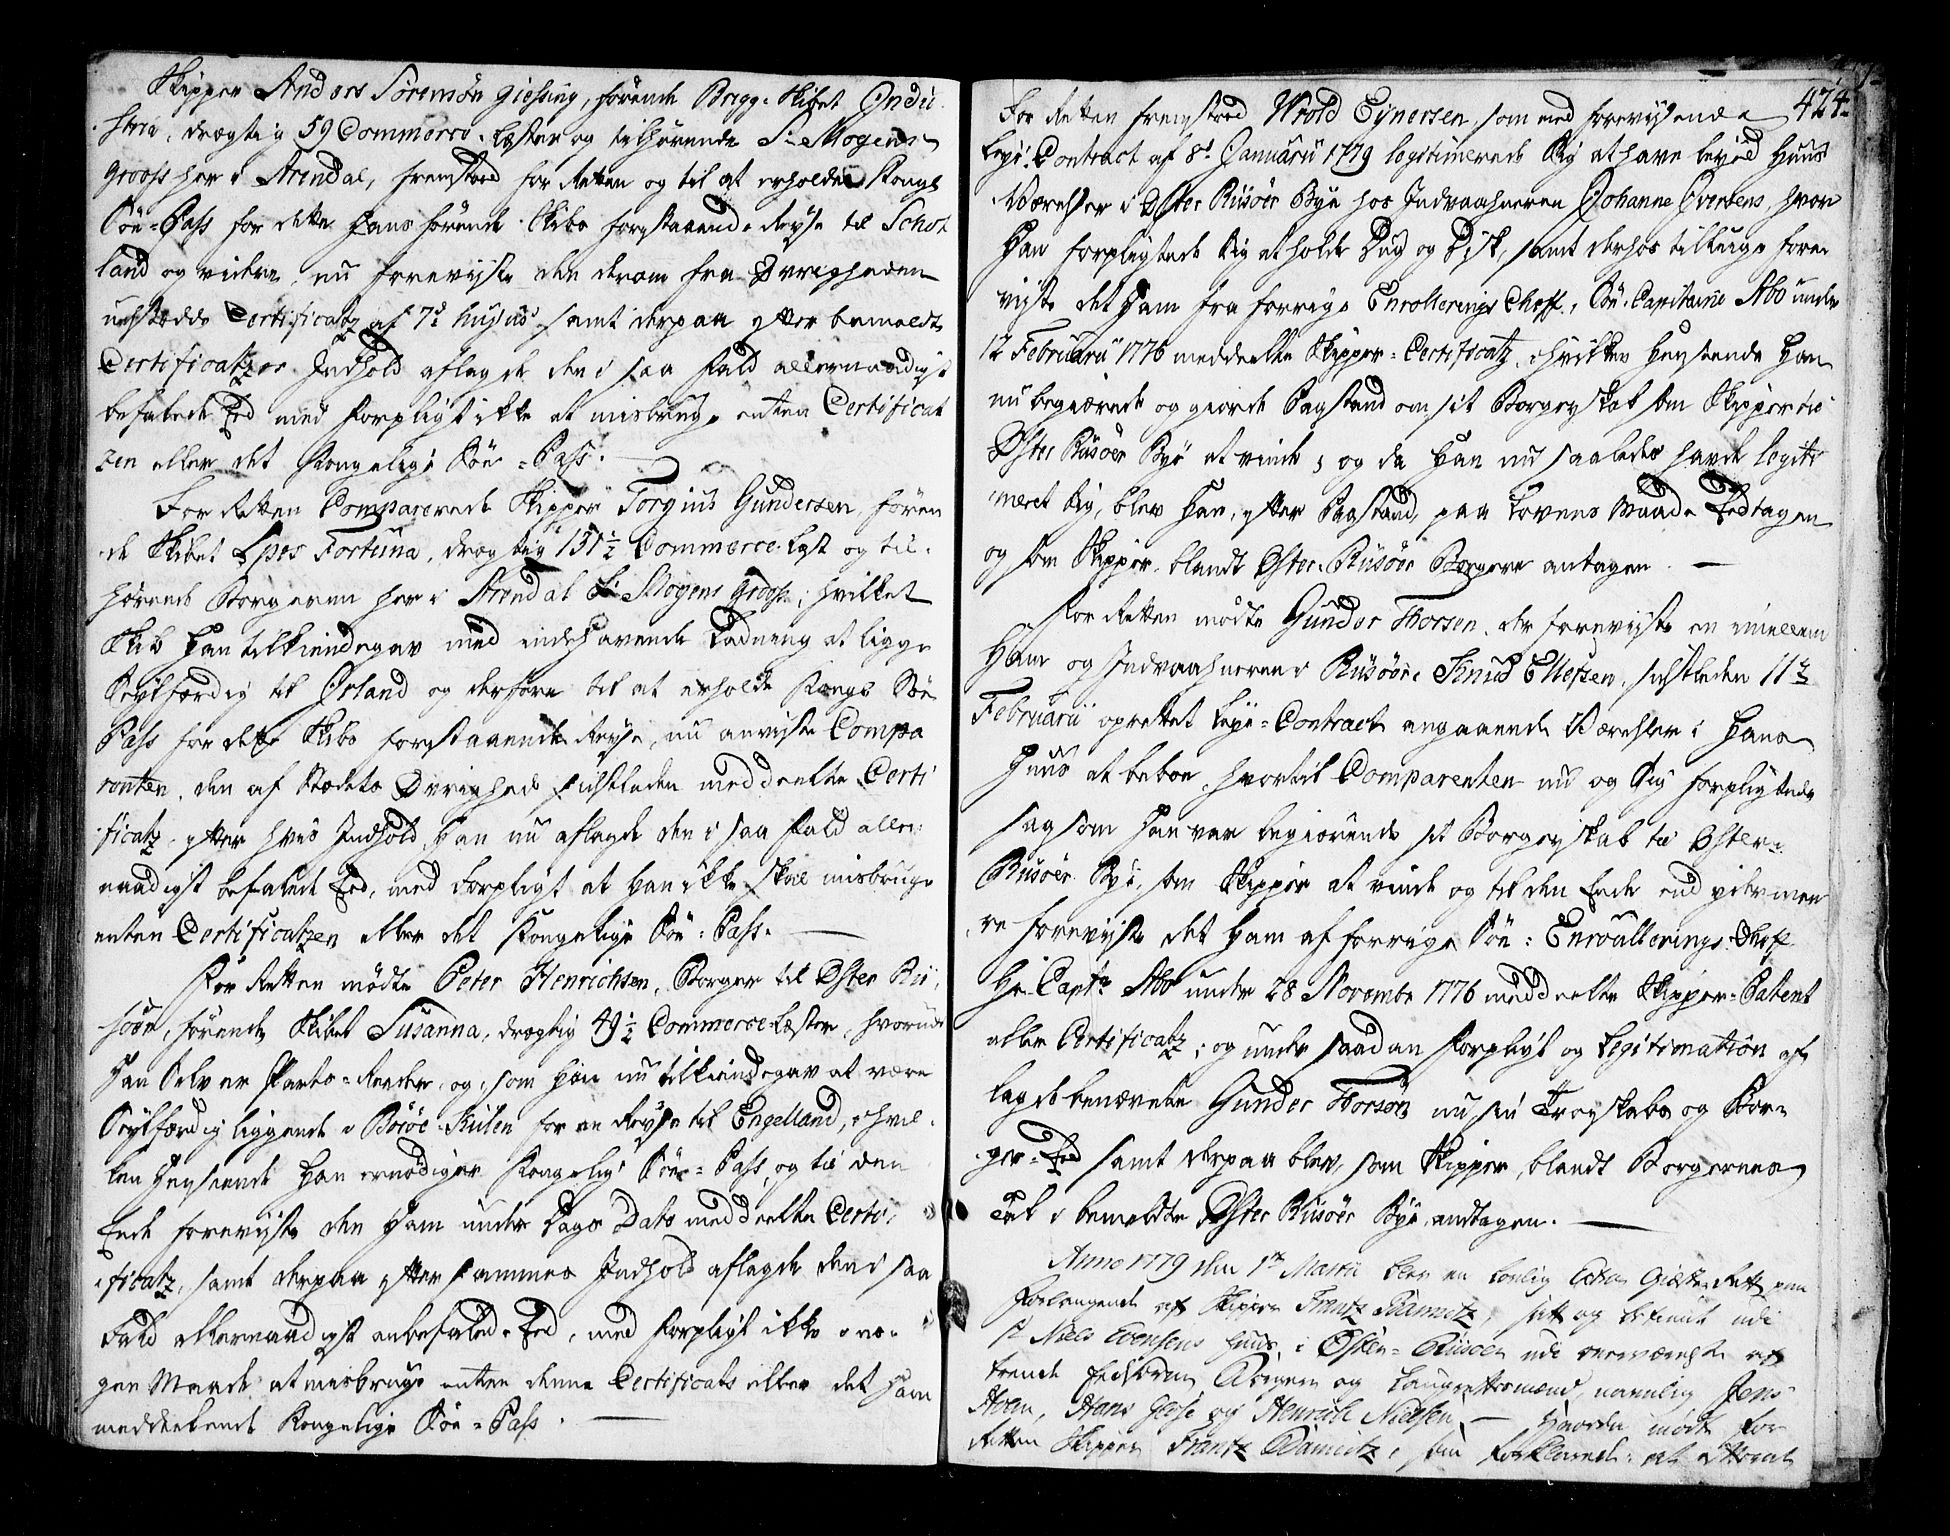 Skipper Anders Sörensön Giessing, förende Brigg-Skibet Indu-
strie, drægtig 59 Commerce-Læster og tilhørende Sr Mogens
Grooss her i Arendal, fremstod for Retten og til at erholde Kongl:
Söe-Pass for dette Hans förende Skibs forestaaende Reyse til Schot-
land og videre, nu foreviiste den derom fra Øvrigheden
udstædde Certificatz af 7de hujus samt derpaa efter bemeldte
Certificatzes Indhold aflagde den i saa Fald allernaadigst
befalede Eed med Forpligt ikke at misbruge enten Certificat
zen eller det Kongelige Söe-Pass.
For Retten Comparerede Skipper Torgius Gundersen, fören
de Skibet Spes Fortuna, drægtig 151½ Commerce-Læst og til-
hørende Borgeren her i Arendal Sr Mogens Grooss; hvilket
Skib Han tilkiendegav med indehavende Ladning at ligge
Seylfærdig til Irland og derfore til at erholde Kongl: Söe
Pass for dette Skibs forestaaende Reyse, nu anviiste Compa
renten, den af Stædets Øvrighed sidstleden meddeelte Certi
ficatz, efter hvis Indhold Han nu aflagde den i saa Fald aller-
naadigst befalede Eed, med Forpligt at Han ikke skal misbruge
enten Certificatzen eller det Kongelige Söe-Pass.
For Retten mødte Peter Henrichsen, Borger til Øster Rii-
söer, förende Skibet Susanna, drægtig 49½ Commerce-Læster, hvorudi
Han Selv er Parts-Reeder, og, som Han nu tilkiendegav at være
Seylfærdig liggende i Böröe-Kilen for en Reyse til Engelland, i hvil-
ken Henseende Han ernödiger Kongelig Söe-Pass, og til den
Ende foreviiste den Ham under Dags Dato meddeelte Certi-
ficatz, samt derpaa efter sammes Indhold aflagde den i saa
Fald allernaadigst anbefalede Eed, med Forpligt ikke i no-
gen Maade at misbruge enten denne Certificats eller det Ham
meddeelende Kongelige Söe-Pass.
424
For Retten fremstod Wrold Eynersen, som med forevisende
Leye-Contract af 8de Januarii 1779 legitimerede sig at have leyed Huus
Værelser i Øster Riisöer Bye hos Indvaaneren Johanne Overtens, hvor
Han forpligtede sig at holde Dug og Disk, samt derhos tillige fore-
viiste det Ham fra forrige Enrollerings Cheff, Söe-Capitaine Abo under
12 Februarii 1776 meddeelte Skipper-Certificatz, i hvilken Henseende Han
nu begiærede og giorde Paastand om sit Borgerskab som Skipper til
Øster Riisöer Bye at vinde; og da Han nu saaledes havde legiti
meret sig, blev Han, efter Paastand, paa Lovens Maade Eedtagen
og som Skipper, blandt Øster-Riisöer Borgere antagen.
For Retten mødte Gunder Thorsen, der foreviiste en imellem
Ham og Indvaaneren i Riisöer Knud Ellefsen, sidstleden 11te
Februarii oprettet Leye-Contract angaaende Værelser i Hans
Huus at beboe, hvortil Comparenten nu og Sig forpligtede
saasom Han var begiærende sit Borgerskab til Øster-
Riisöer Bye, som Skipper at vinde og til den Ende end yderme
re foreviiste det Ham af forrige Söe-Enroullerings-Cheff
Hr Captn Abo under 28 Novembr 1776 meddeelte Skipper-Patent
eller Certificatz; og under saadan Forpligt og Legitimation af-
lagde benævnte Gunder Thorsön nu sin Troeskabs og Bor-
ger-Eed samt derpaa blev, som Skipper, blandt Borgernes
Tal i bemeldte Øster Riisöer Bye, antagen.
Anno 1779 den 1te Martii blev en lovlig Extra Giæste-Rett paa
Forlangende af Skipper Frantz Damnitz, satt og betient udi
Sr Niels Evensens Huus i Øster-Riisöer udi overværelse af
trende Eedsorne Borgere og Laugrettesmænd, navnlig Jens
Hven, Hans Giese og Henrich Nielsen. — Hvorda mødte for
Retten Skipper Frantz Damnitz, som forklarede: at